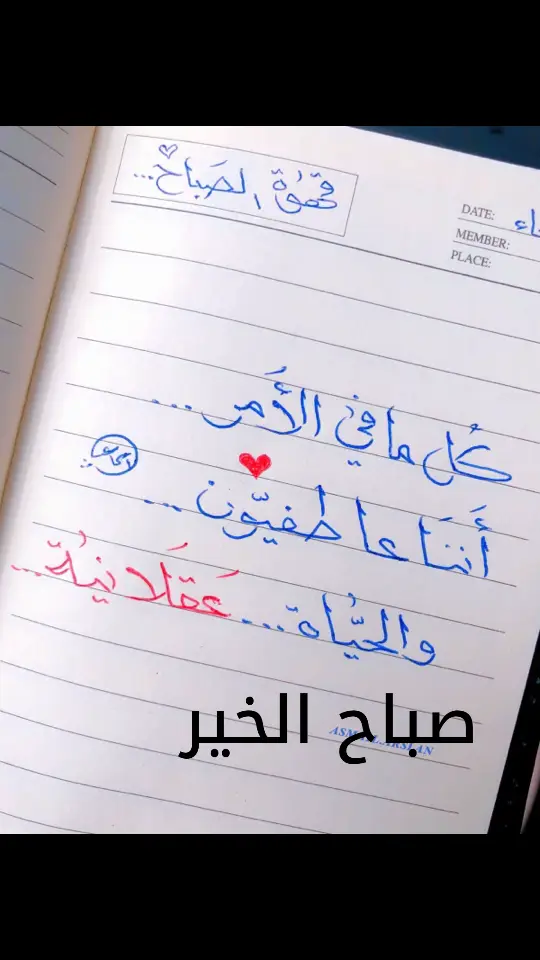 قهوة الصباح...
DATE:
MEMBER:
PLACE:
كُل ما في الأَمر...
أَننَا عاطفيّون...
والحيَاة... عَقلَانيُة...
صباح الخير